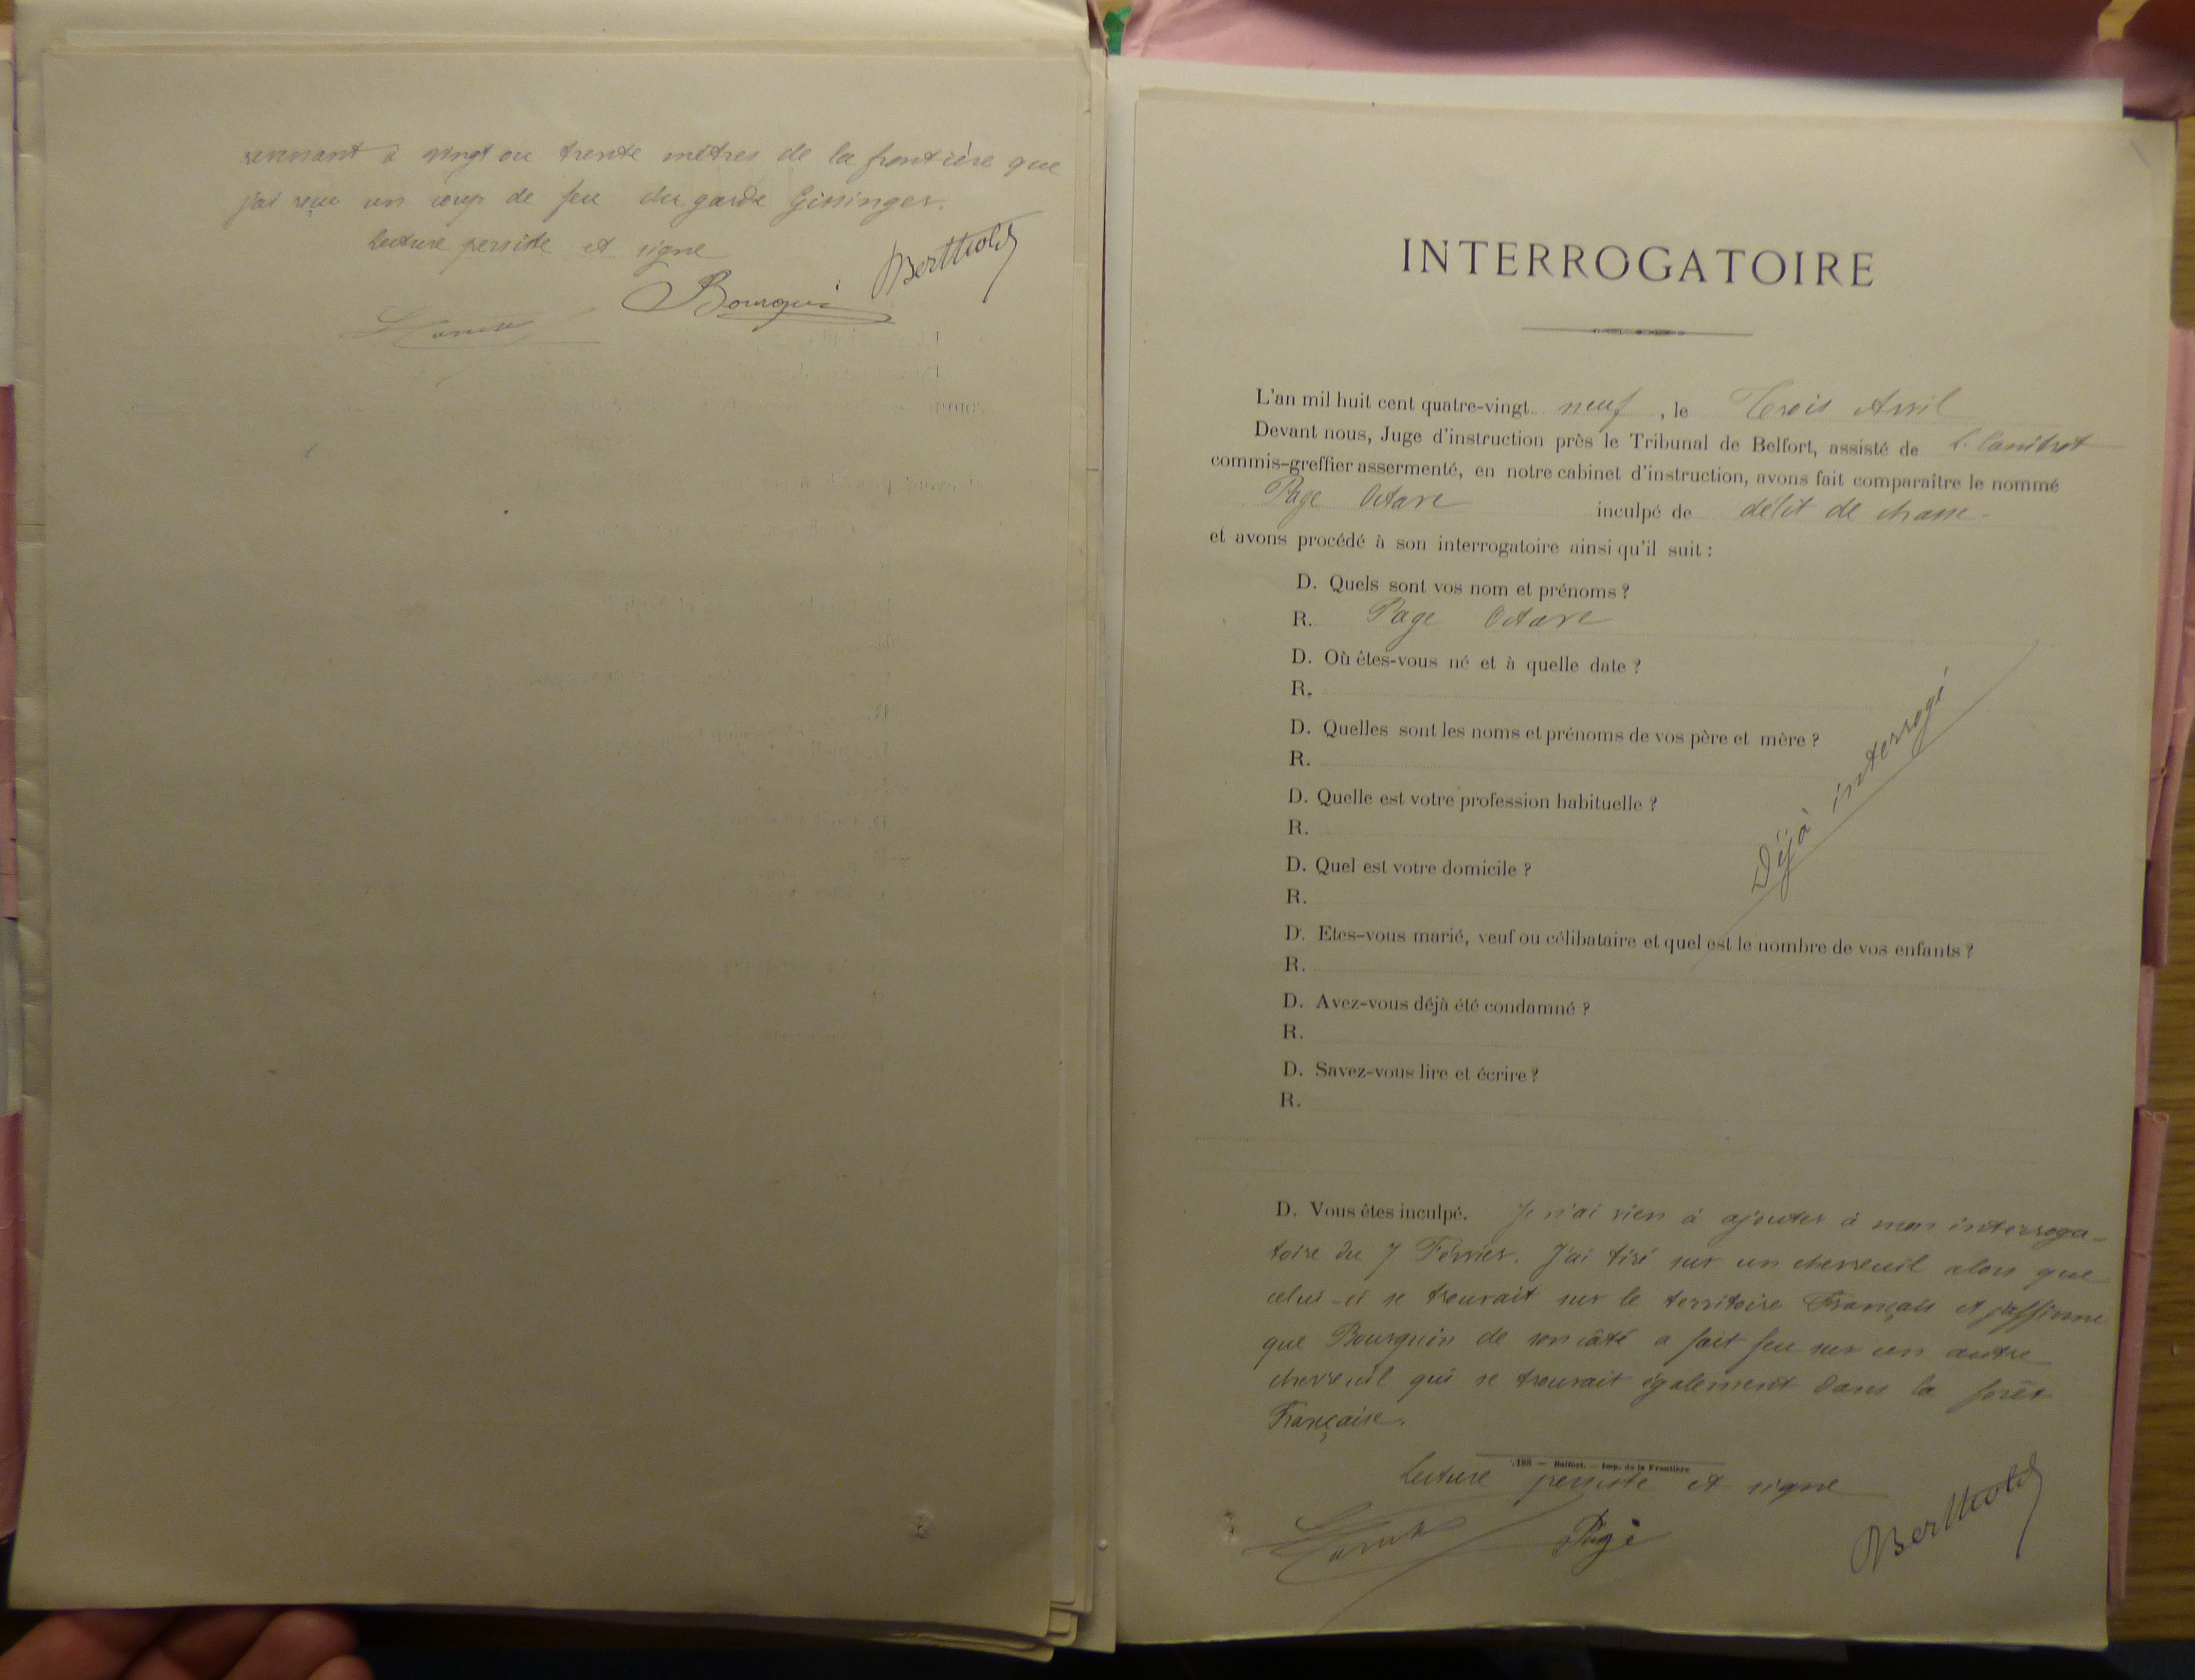 revenant à vingt ou trente mètres de la frontière que
j'ai reçu un coup de feu du garde Gissinger.
Lecture persiste et signe
Berthold
Bourquin
INTERROGATOIRE
L'an mil huit cent quatre-vingt neuf, le Trois Avril
Devant nous, Juge d'instruction près le Tribunal de Belfort, assisté de L. Canitrot
commis-greffier assermenté, en notre cabinet d'instruction, avons fait comparaître le nommé
Page Octave inculpé de délit de chasse-
et avons procédé à son interrogatoire ainsi qu'il suit :
D. Quels sont vos nom et prénoms ?
R. Page Octave
D. Où êtes-vous né et à quelle date ?
R.
D. Quelles sont les noms et prénoms de vos père et mère ?
R.
D. Quelle est votre profession habituelle ?
R.
D. Quel est votre domicile ?
R.
D. Etes-vous marié, veuf ou célibataire et quel est le nombre de vos enfants ?
R.
D. Avez-vous déjà été condamné ?
R.
D. Savez-vous lire et écrire ?
R.
Déjà interrogé
D. Vous êtes inculpé. Je n'ai rien à ajouter à mon interroga-
toire du 7 Février. J'ai tiré sur un chevreuil alors que
celui-ci se trouvait sur le territoire Français et j'affirme
que Bourquin de son côté a fait feu sur un autre
chevreuil qui se trouvait également dans la forêt
Française.
188 — Belfort. — Imp. de la Frontière
Lecture persiste et signe
Page
Berthold